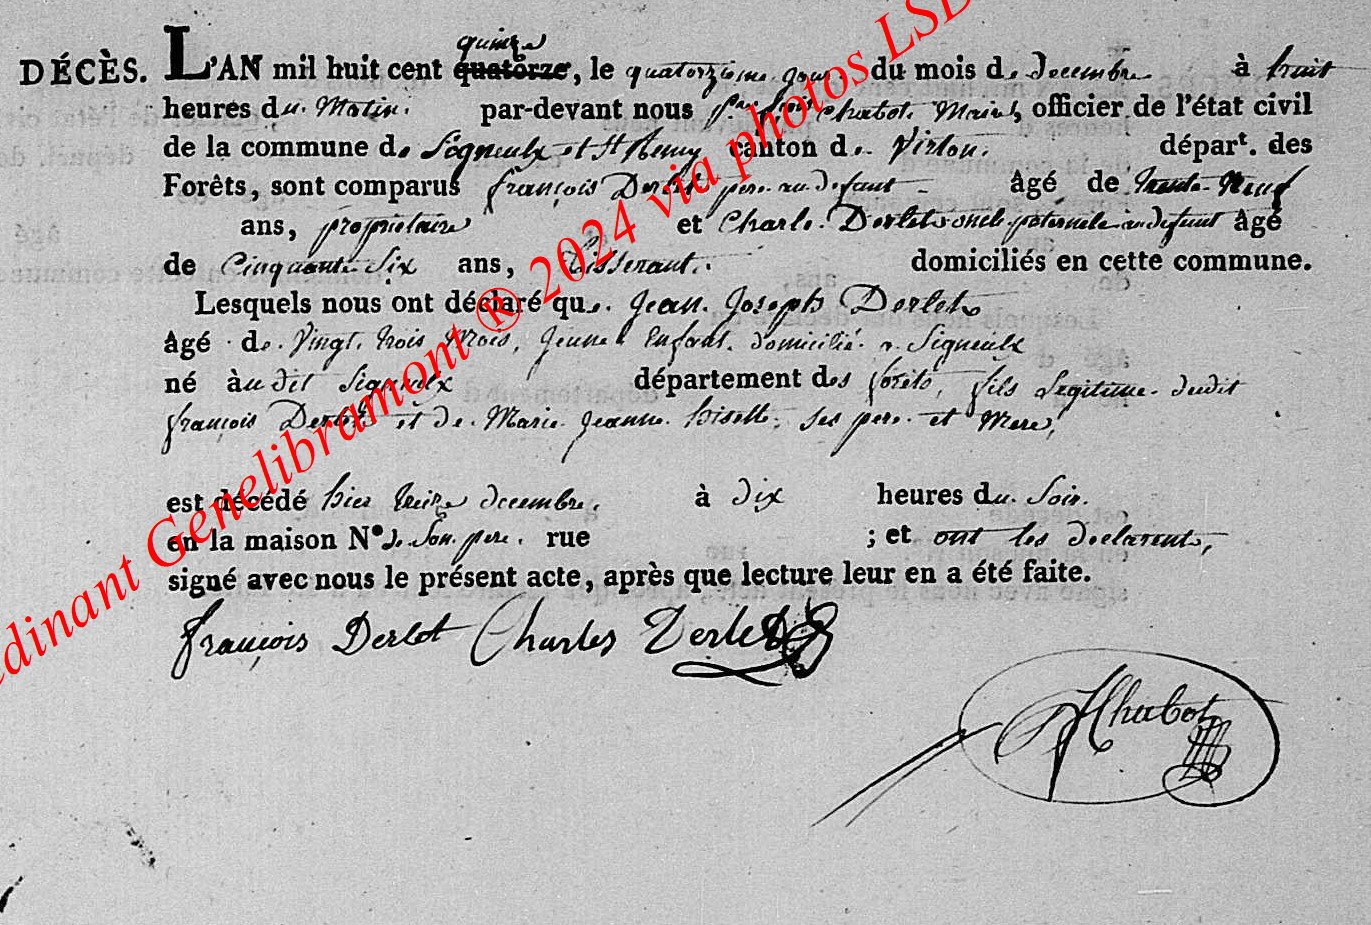 quinze
DÉCÈS. L'AN mil huit cent quatorze, le quatorzieme jour du mois de decembre à huit
heures du Matin. par-devant nous Chabot Maire, officier de l'état civil
de la commune de Signeulx et St Remy canton de Virton. départ. des
Forêts, sont comparus françois Derlet pere au defunt âgé de trente Neuf
ans, proprietaire et Charle Derlet oncle paternele au defunt âgé
de Cinquante Six ans, Tisserant. domiciliés en cette commune.
Lesquels nous ont déclaré que Jean Joseph Derlet
âgé de Vingt trois Mois, jeune Enfant domicilié a Signeulx
né àu dit Signeulx département des forêts, fils Legitime dudit
françois Derlet et de Marie jeanne hiselle, ses pere et Mere,
est décédé hier treize decembre, à dix heures du Soir.
en la maison N° de Son pere. rue ; et ont les declarents,
signé avec nous le présent acte, après que lecture leur en a été faite.
françois Derlet Charles Derlet
Chabot
edinant Genelibramont ® 2024 via photos LSD